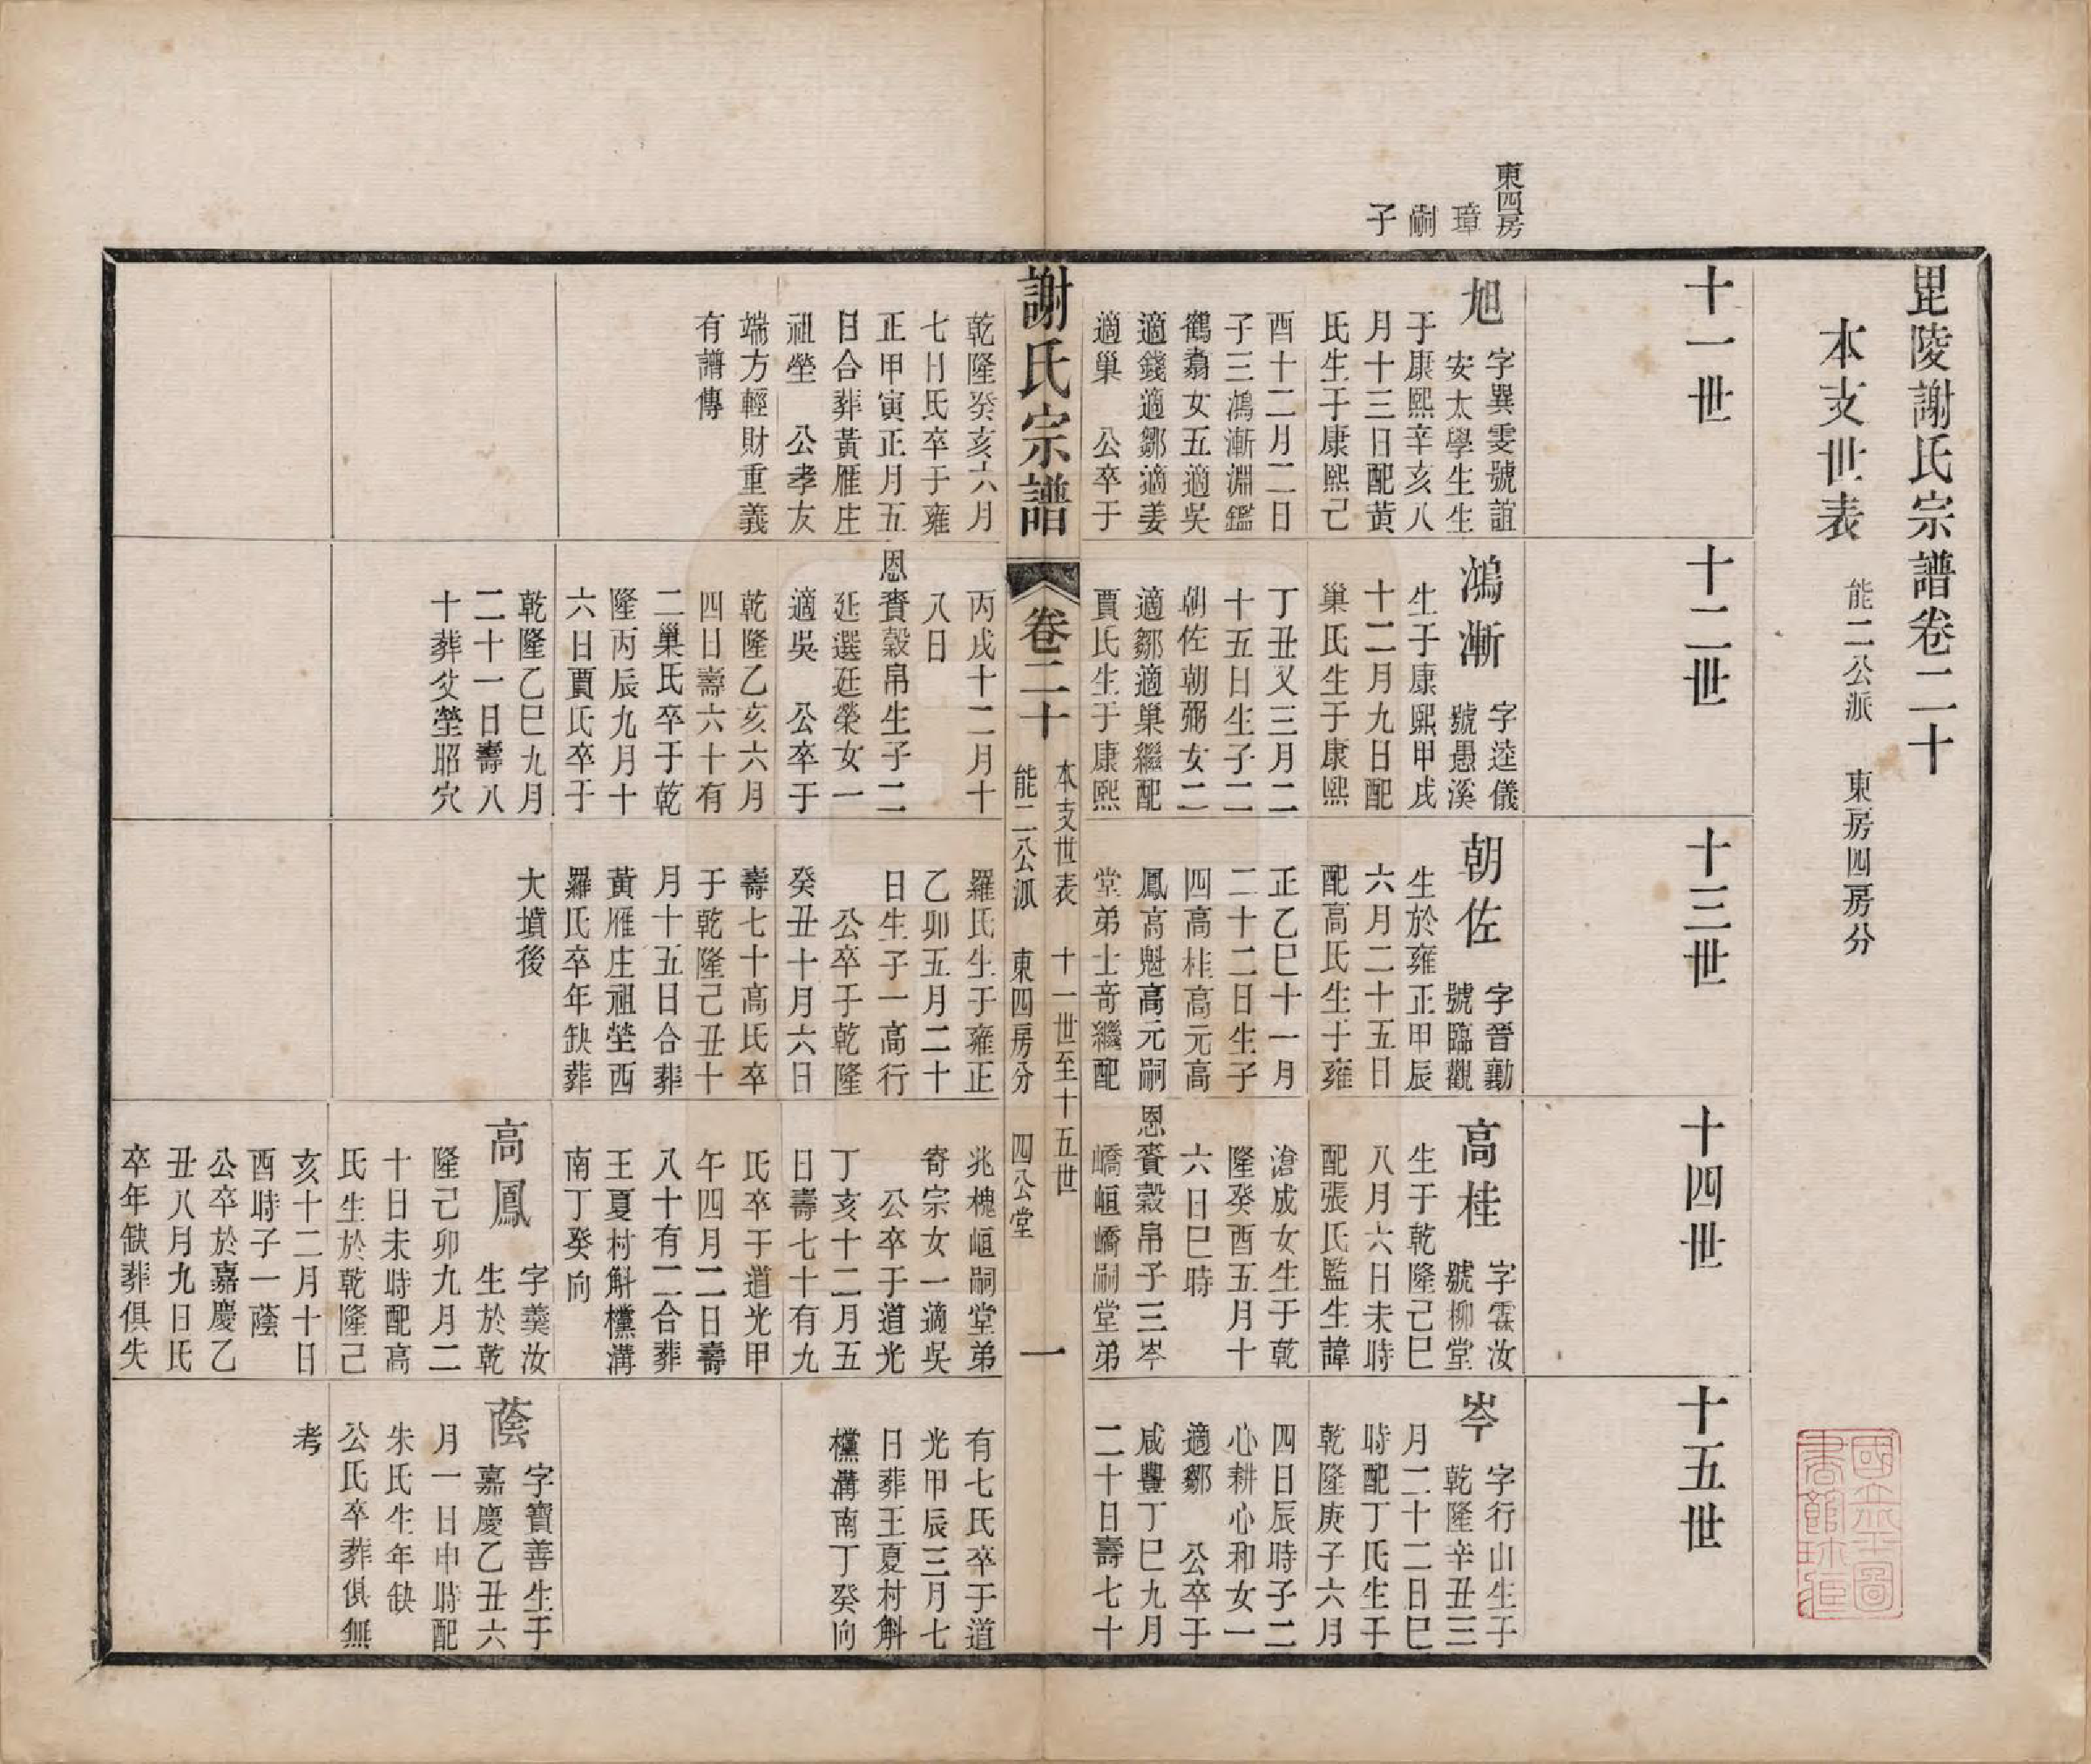 毘陵謝氏宗譜卷二十
本支世表 能二公派 東房四房分
東四房
璋
嗣
子
十一世
旭 字異雯號誼
安太學生生
于康熙辛亥八
月十三日配黃
氏生于康熙己
酉十二月二日
子三鴻漸淵鑑
鶴翥女五適吳
適錢適鄒適姜
適巢 公卒于
乾隆癸亥六月
七日氏卒于雍
正甲寅正月五
日合葬黃雁庄
祖塋 公孝友
端方輕財重義
有譜傳
十二世
鴻漸 字逵儀
號愚溪
生于康熙甲戌
十二月九日配
巢氏生于康熙
丁丑又三月二
十五日生子二
朝佐朝弼女二
適鄒適巢繼配
賈氏生于康熙
丙戌十二月十
八日
恩賚穀帛生子二
延選延榮女一
適吳 公卒于
乾隆乙亥六月
四日壽六十有
二巢氏卒于乾
隆丙辰九月十
六日賈氏卒于
乾隆乙巳九月
二十一日壽八
十葬父塋昭穴
十三世
朝佐 字晉勷
號臨觀
生於雍正甲辰
六月二十五日
配高氏生于雍
正乙巳十一月
二十二日生子
四高桂高元高
鳳高魁高元嗣
堂弟士奇繼配
羅氏生于雍正
乙卯五月二十
日生子一高行
公卒于乾隆
癸丑十月六日
壽七十高氏卒
于乾隆己丑十
月十五日合葬
黃雁庄祖塋西
羅氏卒年缺葬
大墳後
十四世
高桂 字霖汝
號柳堂
生于乾隆己巳
八月六日未時
配張氏監生諱
滄成女生于乾
隆癸酉五月十
六日巳時
恩賚穀帛子三岑
嶠岠嶠嗣堂弟
兆槐岠嗣堂弟
寄宗女一適吳
公卒于道光
丁亥十二月五
日壽七十有九
氏卒于道光甲
午四月二日壽
八十有二合葬
王夏村斛欓溝
南丁癸向
高鳳 字羹汝
生於乾
隆己卯九月二
十日未時配高
氏生於乾隆己
亥十二月十日
酉時子一蔭
公卒於嘉慶乙
丑八月九日氏
卒年缺葬俱失
十五世
岑 字行山生于
乾隆辛丑三
月二十二日巳
時配丁氏生于
乾隆庚子六月
四日辰時子二
心耕心和女一
適鄒 公卒于
咸豐丁巳九月
二十日壽七十
有七氏卒于道
光甲辰三月七
日葬王夏村斛
欓溝南丁癸向
蔭 字寶善生于
嘉慶乙丑六
月一日申時配
朱氏生年缺
公氏卒葬俱無
考
謝氏宗譜 卷二十 本支世表 十一世至十五世
能二公派 東四房分 四公堂 一
國立北平圖書館珍藏